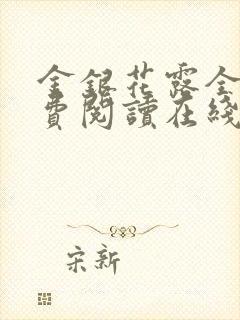 金銀花露全
費閱讀在綫
宋新